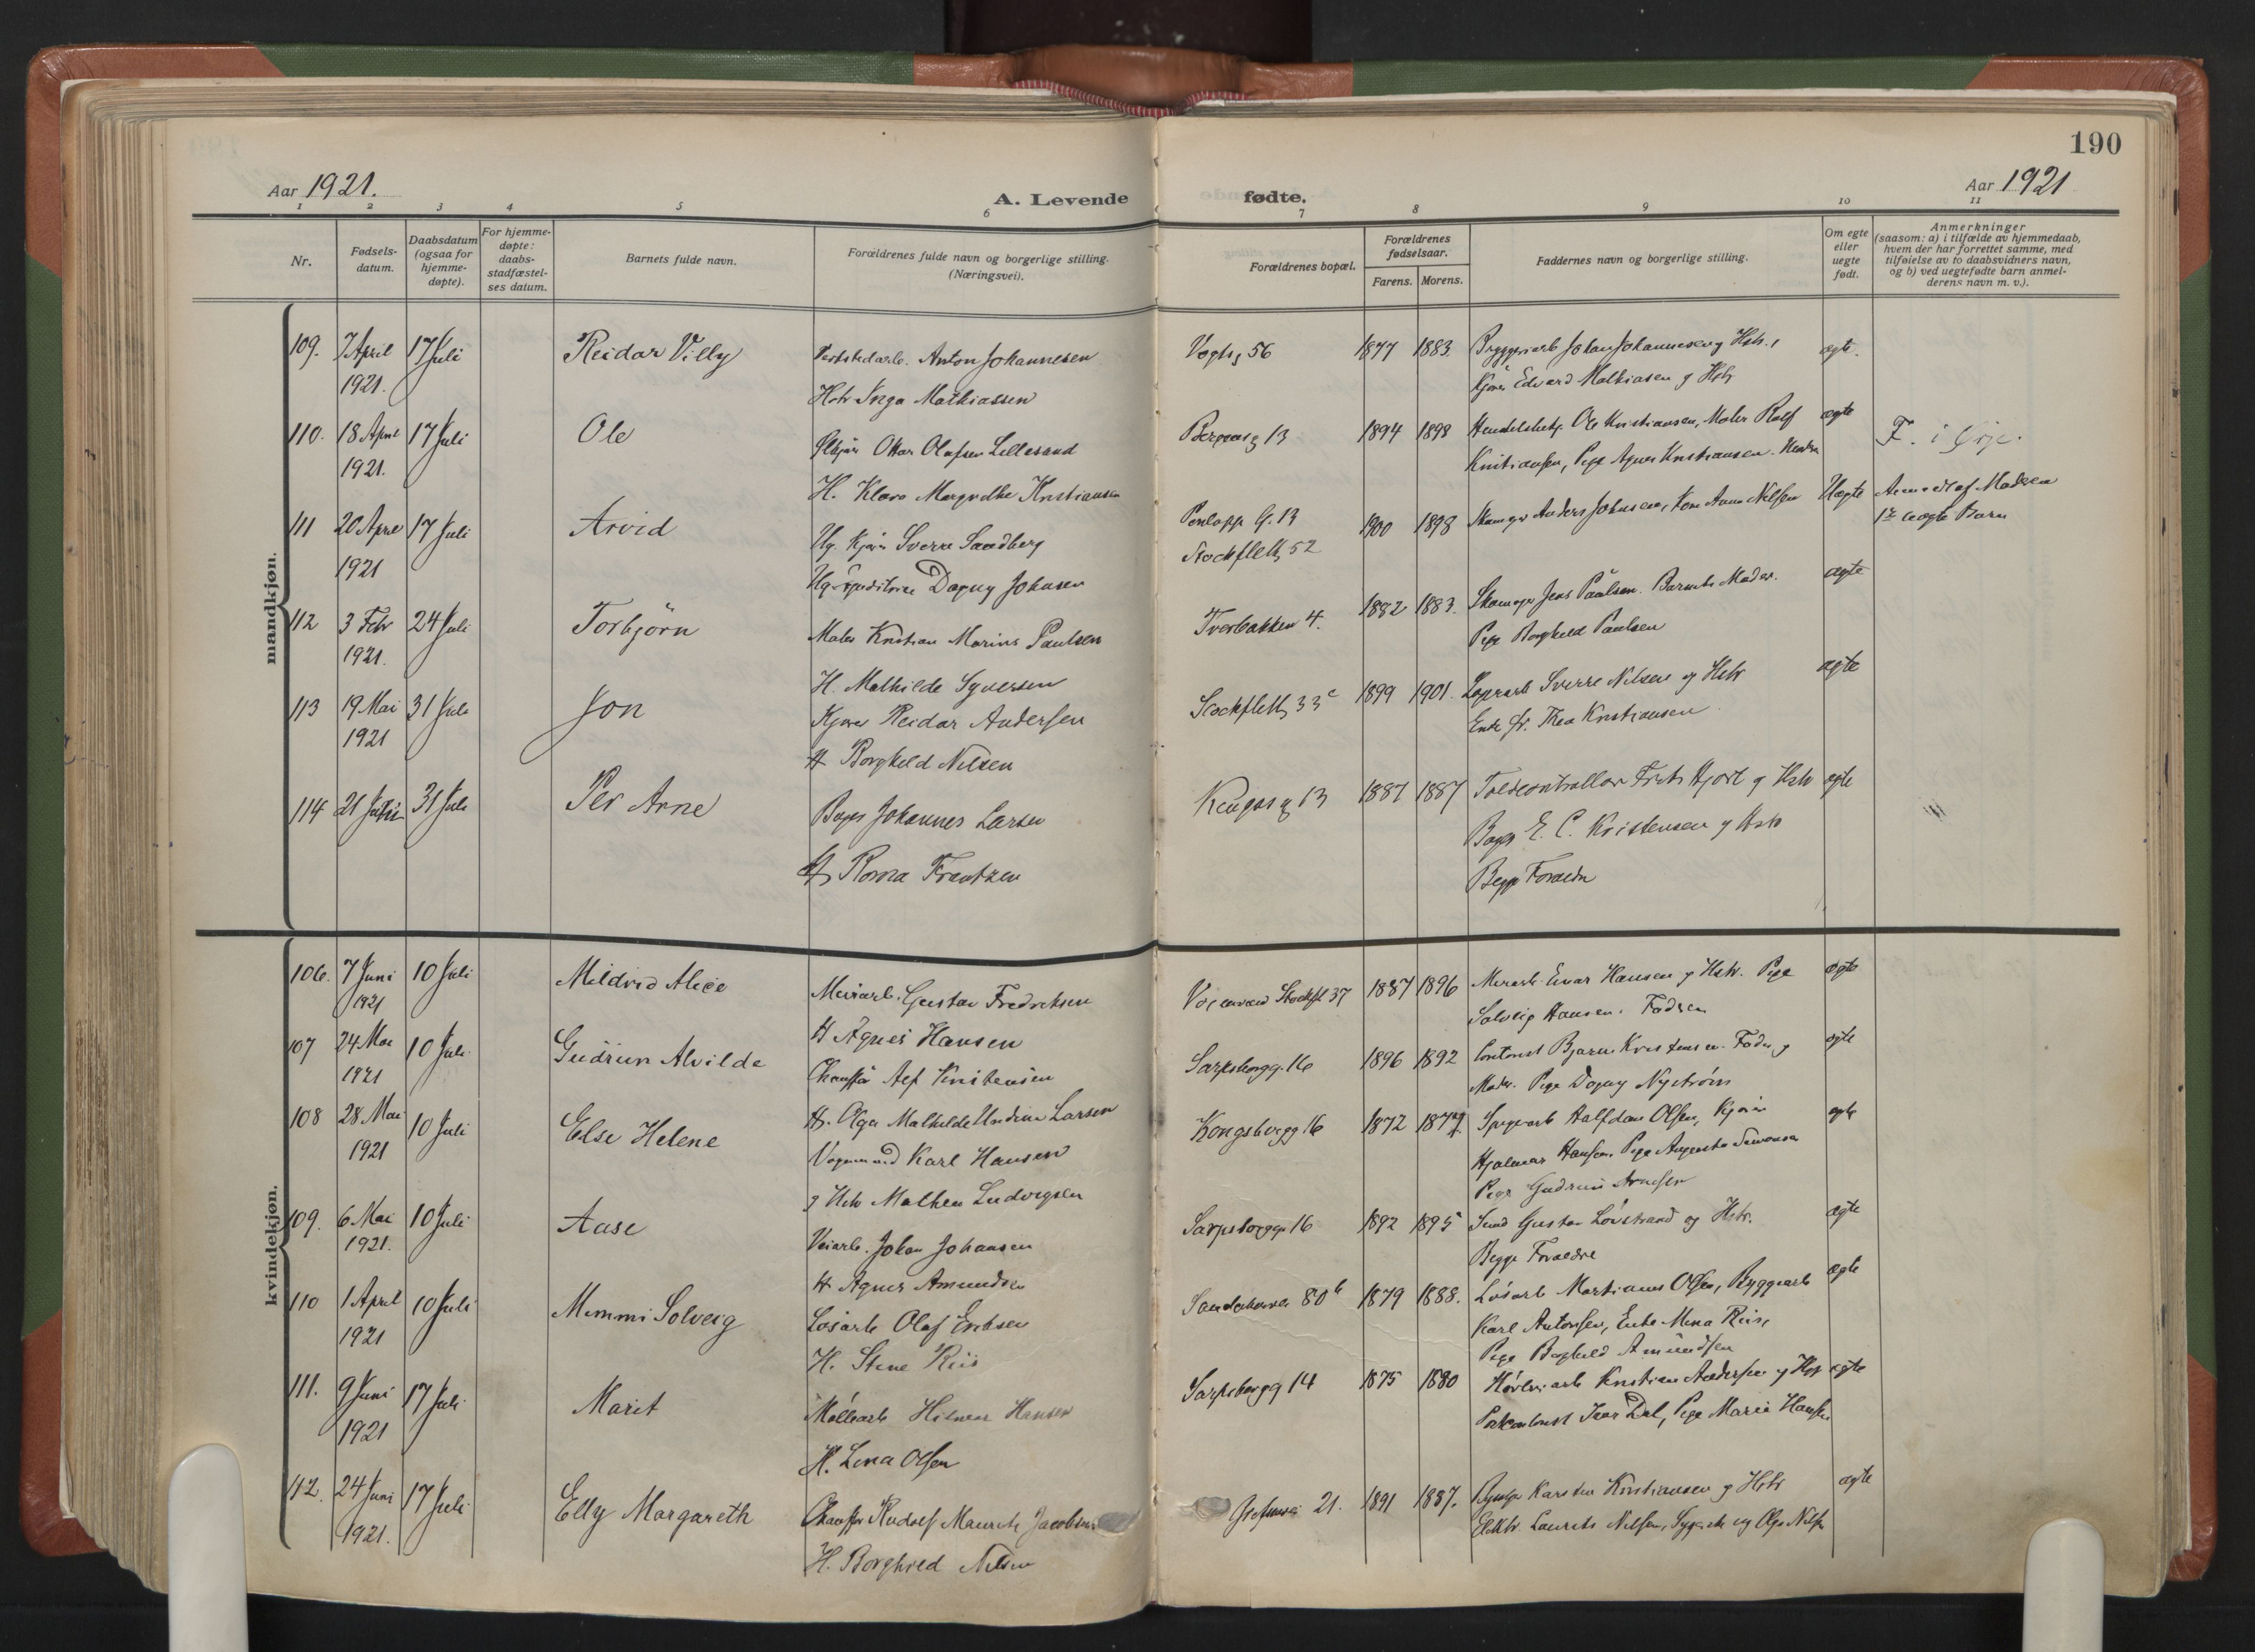 190
Aar 1921.
A. Levende
fødte.
Aar 1921
1 2 3 4 5 6 7 8 9 10 11
Nr.
Fødsels-
datum.
Daabsdatum
(ogsaa for
hjemme-
døpte).
For hjemme-
døpte:
daabs-
stadfæstel-
ses datum.
Barnets fulde navn.
Forældrenes fulde navn og borgerlige stilling.
(Næringsvei).
Forældrenes bopæl.
Forældrenes
fødselsaar.
Farens. Morens.
Faddernes navn og borgerlige stilling.
Om egte
eller
uegte
født.
Anmerkninger
(saasom: a) i tilfælde av hjemmedaab,
hvem der har forrettet samme, med
tilføielse av to daabsvidners navn,
og b) ved uegtefødte barn anmel-
derens navn m. v.).
mandkjøn.
109. 7 April 17 Juli Reidar Villy Anton Johannesen Vogtsg 56 1877 1883. Bryggeriarb Johan Johannesen og Hstr.,
1921. Hstr Inga Mathiassen Kjører Edvard Mathiasen og Hstr
egte.
110. 18 April 17 Juli Ole Ottar Olafsen Lillesand Bergensg 13 1894 1898 Ole Kristiansen, Maler Rolf
egte
1921. H. Klara Margrethe Kristiansen Kristiansen, Pige Agnes Kristiansen.
F. i Ørje.
111 20 April 17 Juli Arvid Ug. Kjører Sverre Sandberg G. 13 1900 1898 Skomager Anders Johnsen, Kone Anna Nilsen Uegte
Anmeldt af Moderen
1ste uegte Barn
1921 Dagny Johnsen Stockflethg 52
112 3 Febr 24 Juli Torbjörn Maler Kristian Marius Paulsen Tverbakken 4. 1882 1883. Skomager Jens Paulsen. Barnets Moder.
egte
1921. H. Mathilde Syversen Pige Borghild Paulsen
113 19 Mai 31 Juli Jon Kjører Reidar Andersen Stockflethg 33c 1899 1901. Sverre Nilsen og Hstr
egte
1921 H Borghild Nilsen Enke fr. Thea Kristiansen
114 21 Juni 31 Juli Per Arne Bager Johannes Larsen 13 1887 1887 Toldcontrollør Hjort og Hstr egte
H Frantzen Bager E. C. Kristensen og Hstr
Begge Forældre
kvindekjøn.
106. 7 Juni 10 Juli Mildrid Alice Gustav Fredriksen Stockfl 37 1887 1896 Einar Hansen og Hstr. Pige egte
1921 H Agnes Hansen Solveig Hansen. Faderen
107 24 Mai 10 Juli Gudrun Alvilde Chauffør Alf Kristensen Sarpsborgg. 16 1896 1892 Bjarne Kristensen. Fader og egte
1921 H. Olga Mathilde Undine Larsen Moder. Pige Dagny Nyström
108 28 Mai 10 Juli Else Helene Vognmand Karl Hansen Kongsbergg 16 1872 Halfdan Olsen, Kjører egte
1921 og Hstr Mathea Ludvigsen Hjalmar Hansen, Pige Augusta
Pige Gudrun Arnesen
109. 6 Mai 10 Juli Aase Veiarb. Johan Johansen Sarpsborgg 16 1892 1895 Gustav Lövstrand og Hstr. egte
1921. H Agnes Amundsen Begge Forældre
110 1 April 10 Juli Mimmi Solveig Løsarb Olaf Eriksen Sandakerveien 80b 1879 1888. Løsarb Martinius Olsen, Byggearb egte
1921 H. Stine Riis Karl Antonsen, Enke Mina Riis,
Pige Borghild Amundsen
111. 9 Juni 17 Juli Marit Hilmar Hansen Sarpsborgg 14 1875 1880 Kristian Andersen og Hstr egte
1921 H. Lina Olsen Ivar Dal, Pige Marie Hansen
112. 24 Juni 17 Juli Elly Margareth Chauffør Rudolf Mauritz Jacobsen 21. 1891 1887. Karsten Kristiansen og Hstr egte
1921. H. Borghild Nilsen Elektr. Laurits Nilsen, og Olga Nilsen